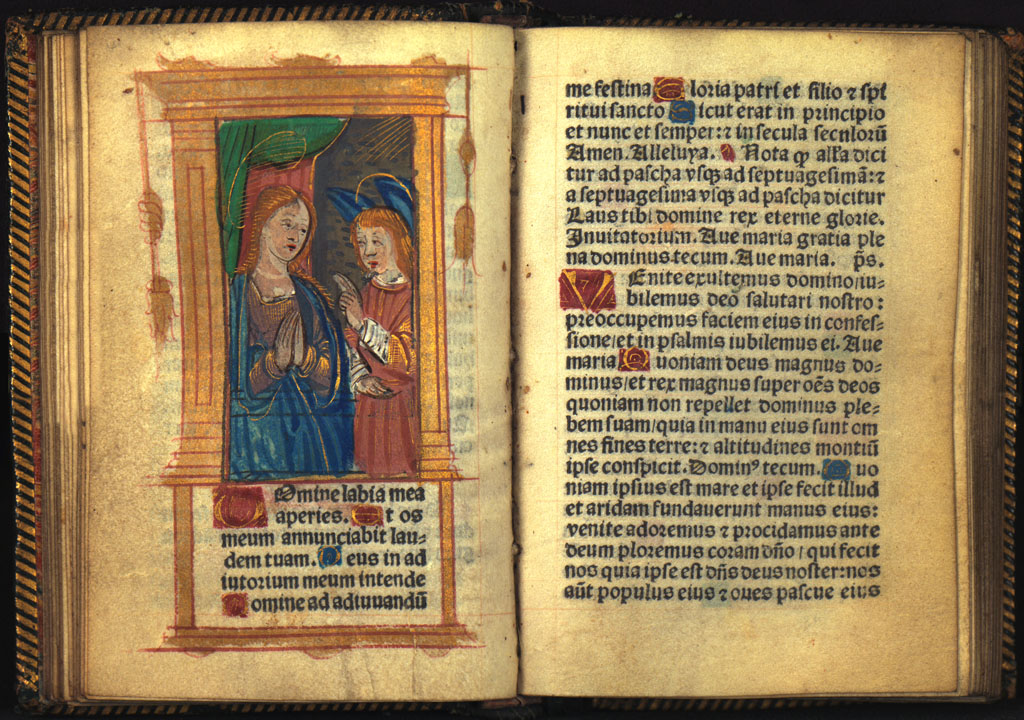 Domine labia mea
aperies. Et os
meum annunciabit lau⸗
dem tuam. Deus in ad
iutorium meum intende
Domine ad adiuuandũ
me festina Gloria patri et filio ⁊ spi
ritui sancto Sicut erat in principio
et nunc et semper: ⁊ in secula seculorũ
Amen. Alleluya. Nota ꝙ alľa dici
tur ad pascha vsqꝫ ad septuagesimã: ⁊
a septuagesima vsqꝫ ad pascha dicitur
Laus tibi domine rex eterne glorie.
Inuitatorium. Aue maria gratia ple
na dominus tecum. Aue maria. p̃s.
VEnite exultemus domino/iu⸗
bilemus deo salutari nostro:
preoccupemus faciem eius in confes⸗
sione/et in psalmis iubilemus ei. Aue
maria Quoniam deus magnus do⸗
minus/et rex magnus super oẽs deos
quoniam non repellet dominus ple⸗
bem suam/quia in manu eius sunt om
nes fines terre: ⁊ altitudines montiũ
ipse conspicit. Dominꝰ tecum. Quo
niam ipsius est mare et ipse fecit illud
et aridam fundauerunt manus eius:
venite adoremus ⁊ procidamus ante
deum ploremus coram dño / qui fecit
nos quia ipse est dñs deus noster: nos
aũt populus eius ⁊ oues pascue eius